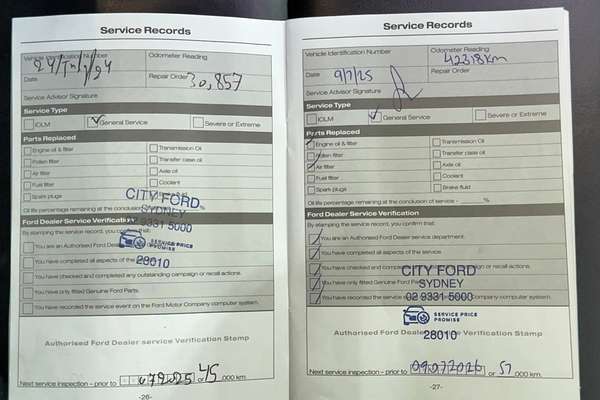 Service Records
Vehicle Identification Number
Odometer Reading
Date
Repair Order
30,857
Service Advisor Signature
Service Type
IOLM
General Service
Severe or Extreme
Parts Replaced
Engine oil & filter
Transmission Oil
Pollen filter
Transfer case oil
Air filter
Axle oil
Fuel filter
Coolant
Spark plugs
fluid
Oil life percentage remaining at the conclusion %
CITY FORD
SYDNEY
9331 5000
SERVICE PRICE
PROMISE
28010
Ford Dealer Service Verification
By stamping the service record, you confirm that:
You are an Authorised Ford
You have completed all aspects of the
You have checked and completed any outstanding campaign or recall actions.
You have only fitted Genuine Ford Parts.
You have recorded the service event on the Ford Motor Company computer system.
Authorised Ford Dealer service Verification Stamp
Next service inspection – prior to or 45 000 km.
-26-
Service Records
Vehicle Identification Number
Odometer Reading
42318km
Date
9/7/25
Repair Order
Service Advisor Signature
Service Type
IOLM
General Service
Severe or Extreme
Parts Replaced
Engine oil & filter
Transmission Oil
Pollen filter
Transfer case oil
Air filter
Axle oil
Fuel filter
Coolant
Spark plugs
Brake fluid
Oil life percentage remaining at the conclusion of service - %
Ford Dealer Service Verification
By stamping the service record, you confirm that:
You are an Authorised Ford Dealer service department.
You have completed all aspects of the service.
You have checked and campaign or recall actions.
You have only fitted Genuine Ford
You have recorded the service Company computer system.
CITY FORD
SYDNEY
02 9331 5000
SERVICE PRICE
PROMISE
28010
Authorised Ford Verification Stamp
Next service inspection – prior to 09072026 or 57 000 km.
-27-